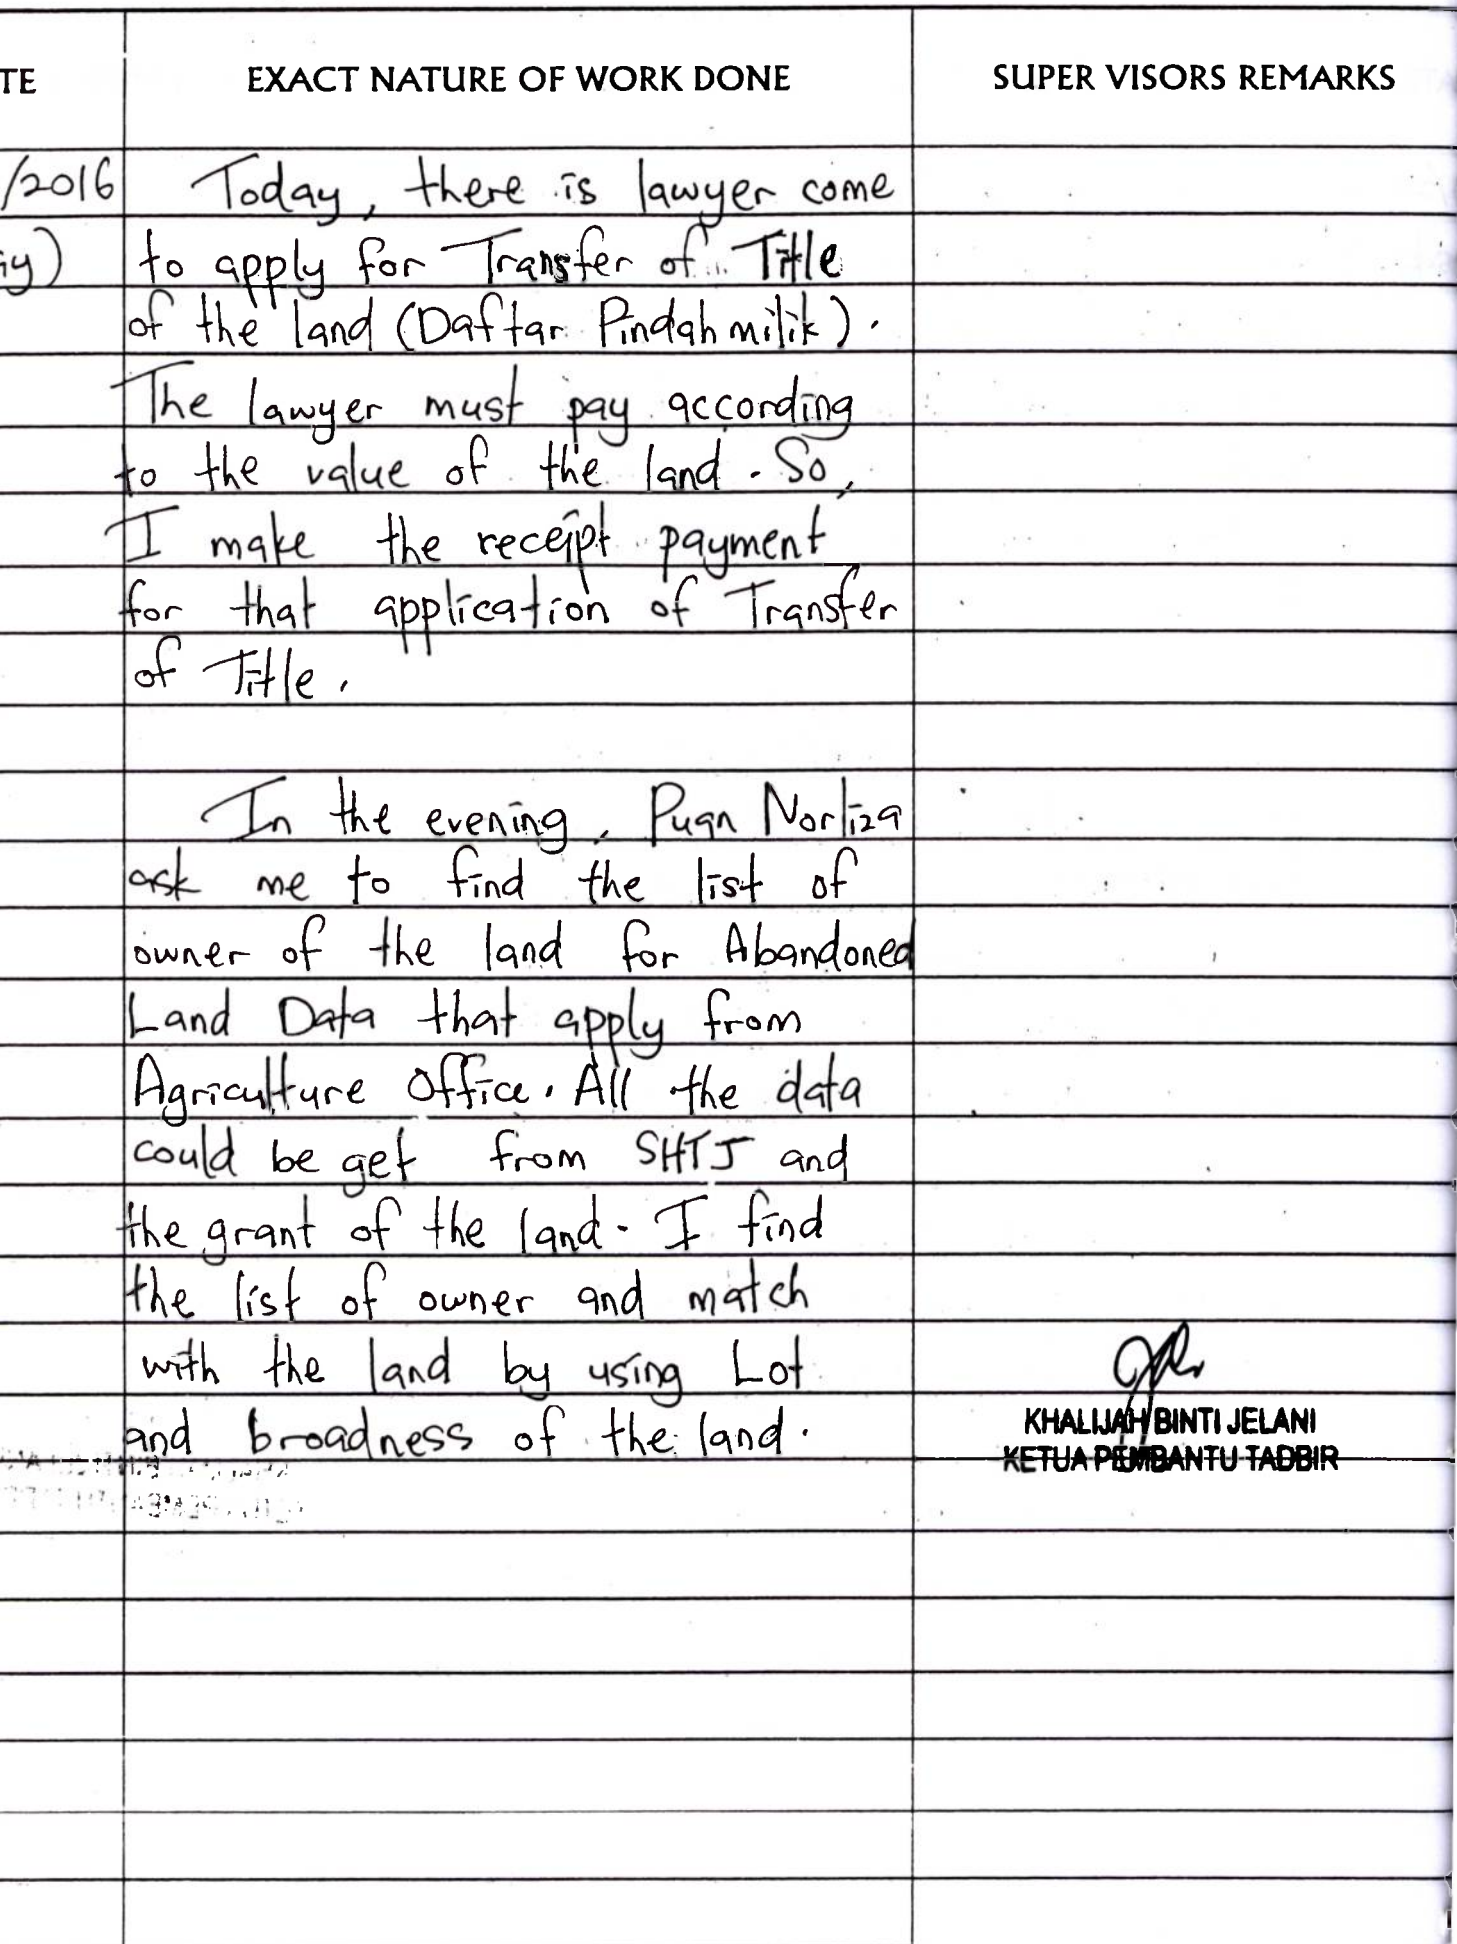 TE EXACT NATURE OF WORK DONE SUPER VISORS REMARKS
/2016 Today, there is lawyer come
to apply for Transfer of Title
of the land (Daftar Pindahmilik).
The lawyer must pay according
to the value of the land. So,
I make the receipt payment
for that application of Transfer
of Title.
In the evening, Puan Norliza
ask me to find the list of
owner of the land for Abandoned
Land Data that apply from
Agriculture Office. All the data
could be get from SHTJ and
the grant of the land. I find
the list of owner and match
with the land by using Lot
and broadness of the land.
KHALIJAH BINTI JELANI
KETUA PEMBANTU TADBIR